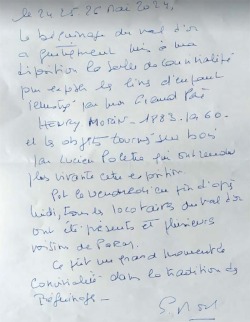 le 24 25. 26 Mai 2024,
Le béguinage du val d'or
a gentiment mis à ma
disposition la salle de convivialité
pour exposer les livres d'enfant
par mon Grand Père
HENRY MORIN - 1883-1960 -
et les objets tournés sur bois
par Lucien qui ont rendu
plus vivante cette exposition.
Pot le vendredi en fin d'après
midi, tous les locataires du val d'or
ont été présents et plusieurs
voisins de
Ce fut un grand moment de
convivialité dans la tradition des
Béguinages -